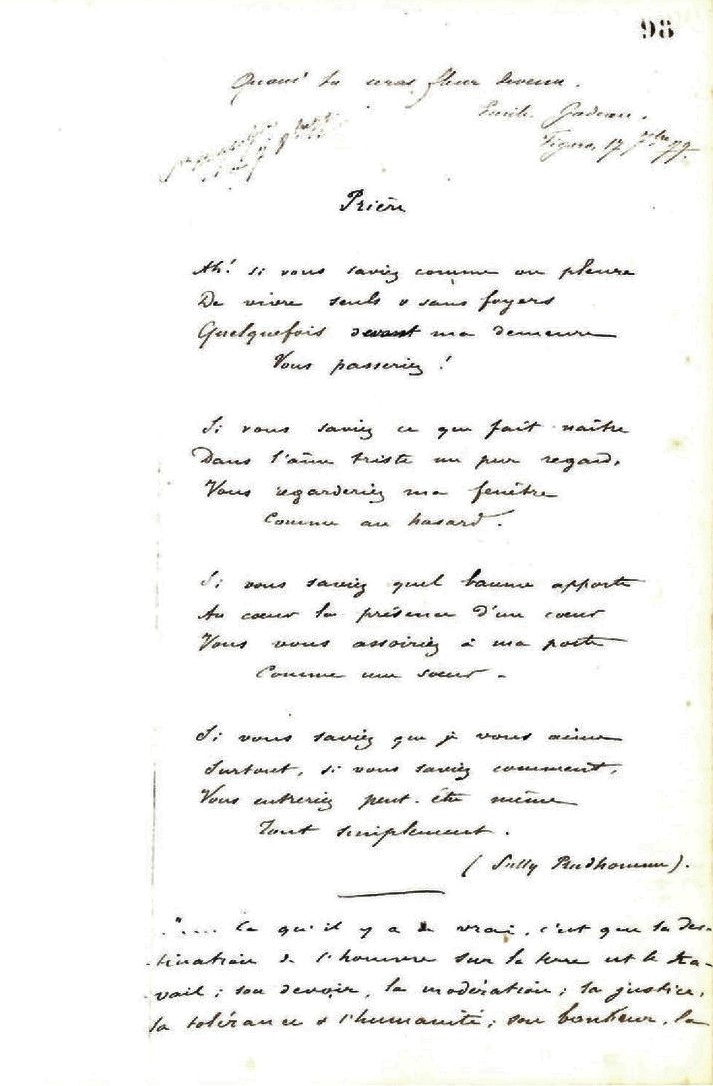 98
Quand tu seras fleur devenue.
Emile Godeau.
Figaro, 17 7bre 79.
Prière
Ah! si vous saviez comme on pleure
De vivre seuls & sans foyers
Quelquefois devant ma demeure
Vous passeriez !
Si vous saviez ce que fait naître
Dans l'âme triste un pur regard,
Vous regarderiez ma fenêtre
Comme au hasard.
Si vous saviez quel baume apporte
Au cœur la présence d'un cœur
Vous vous assoiriez à ma porte
Comme une sœur.
Si vous saviez que je vous aime
Surtout, si vous saviez comment,
Vous entreriez peut-être même
Tout simplement.
(Sully Prudhomme).
".... Ce qu'il y a de vrai, c'est que la des-
tination de l'homme sur la terre est le tra-
vail ; son devoir, la modération ; sa justice,
la tolérance & l'humanité ; son bonheur, la